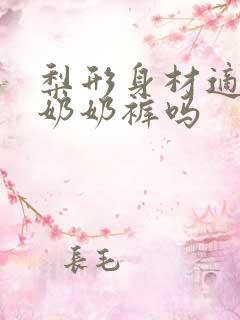 梨形身材适
奶奶裤吗
長毛